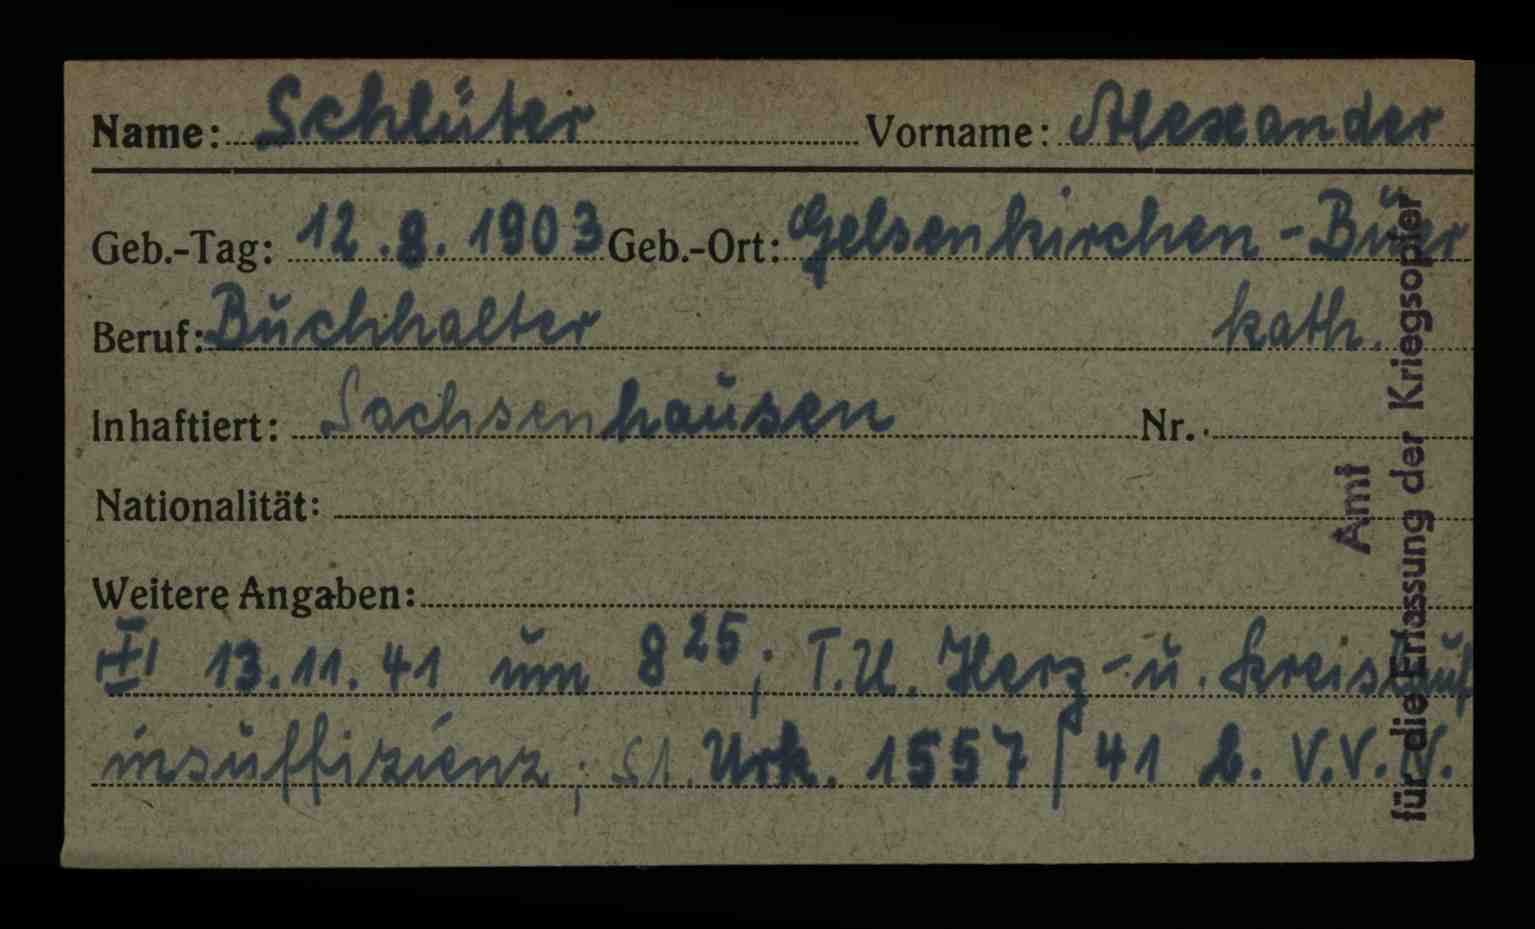 Name: Schlüter Vorname: Alexander
Geb.-Tag: 12.8.1903 Geb.-Ort: Gelsenkirchen-Büer
Beruf: Buchhalter kath.
Inhaftiert: Sachsenhausen Nr.
Nationalität:
Weitere Angaben:
13.11.41 um 8 25; T.U. Herz- u. Kreislauf
insuffizienz; St. Urk. 1557/41 b. V.V.N.
Amt
für die Erfassung der Kriegsopfer